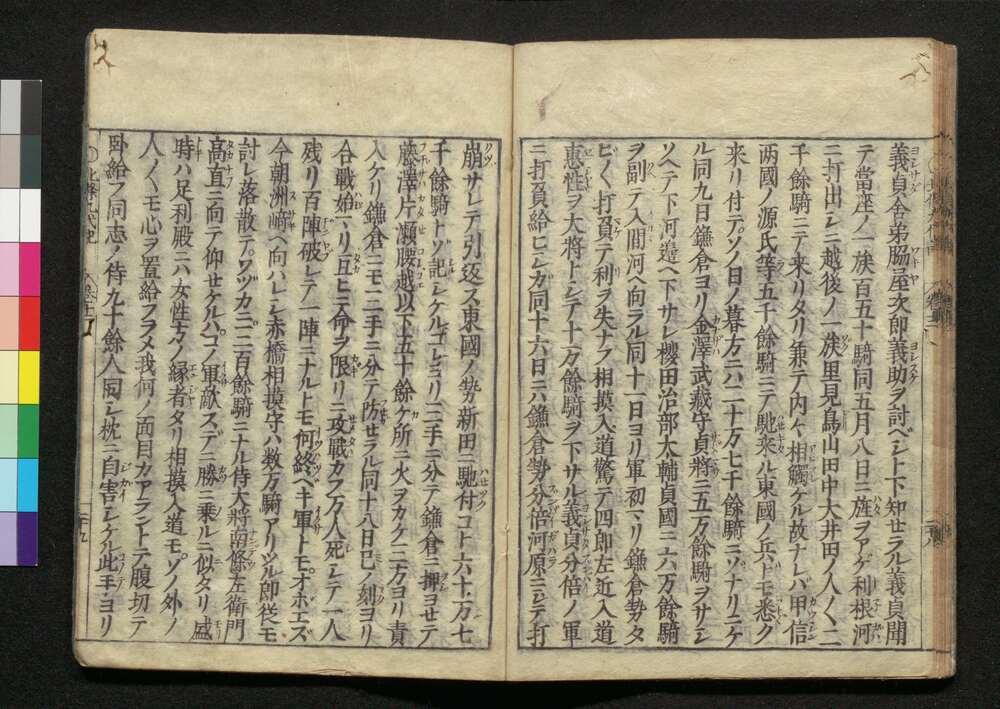 義貞舎弟脇屋次郎義助ヲ討ベシト下知セラル義貞聞
テ當座ノ一族百五十騎同五月八日ニ旌ヲアゲ利根河
ニ打出レシニ越後ノ一族里見鳥山田中大井田ノ人〱二
千餘騎ニテ来リタリ兼テ内々相觸ケル故ナレバ甲信
两國ノ源氏等五千餘騎ニテ馳来ル東國ノ兵ドモ悉ク
来リ付テソノ日ノ暮方ニハ二十万七千餘騎ニゾナリニケ
ル同九日鎌倉ヨリ金澤武蔵守貞將ニ五万餘騎ヲサシ
ソヘテ下河邉ヘ下サレ櫻田治部太輔貞國ニ六万餘騎
ヲ副テ入間河ヘ向ラル同十一日ヨリ軍初マリ鎌倉勢タ
ビ〱打負テ利ヲ失ナフ相摸入道驚テ四郎左近入道
恵性ヲ大將トシテ十万餘騎ヲ下サル義貞分倍ノ軍
ニ打負給ヒシカ同十六日ニハ鎌倉勢分倍河原ニシテ打
崩サレテ引返ス東國ノ勢新田ニ馳付コト六十万七
千餘騎トゾ記シケルコレヨリ三手ニ分テ鎌倉ニ押ヨセテ
藤澤片瀬腰越以下五十餘ケ所ニ火ヲカケ三方ヨリ責
入ケリ鎌倉ニモ三手ニ分テ防セラル同十八日巳ノ刻ヨリ
合戰始マリ互ヒニ命ヲ限リニ攻戰カフ万人死シテ一人
残リ百陣破レテ一陣ニナルトモ何終ベキ軍トモオボエズ
今朝洲﨑ヘ向ハレシ赤橋相摸守ハ数万騎アリツル郎従モ
討レ落散テワヅカニ三百餘騎ニナル侍大將南條左衛門
高直ニ向テ仰セケルハコノ軍敵スデニ勝ニ乗ルニ似タリ盛
時ハ足利殿ニハ女性方ノ縁者タリ相摸入道モソノ外ノ
人〱モ心ヲ置給フラメ我何ノ面目カアラントテ腹切テ
卧給フ同志ノ侍九十餘人同シ枕ニ自害シケル此手ヨリ